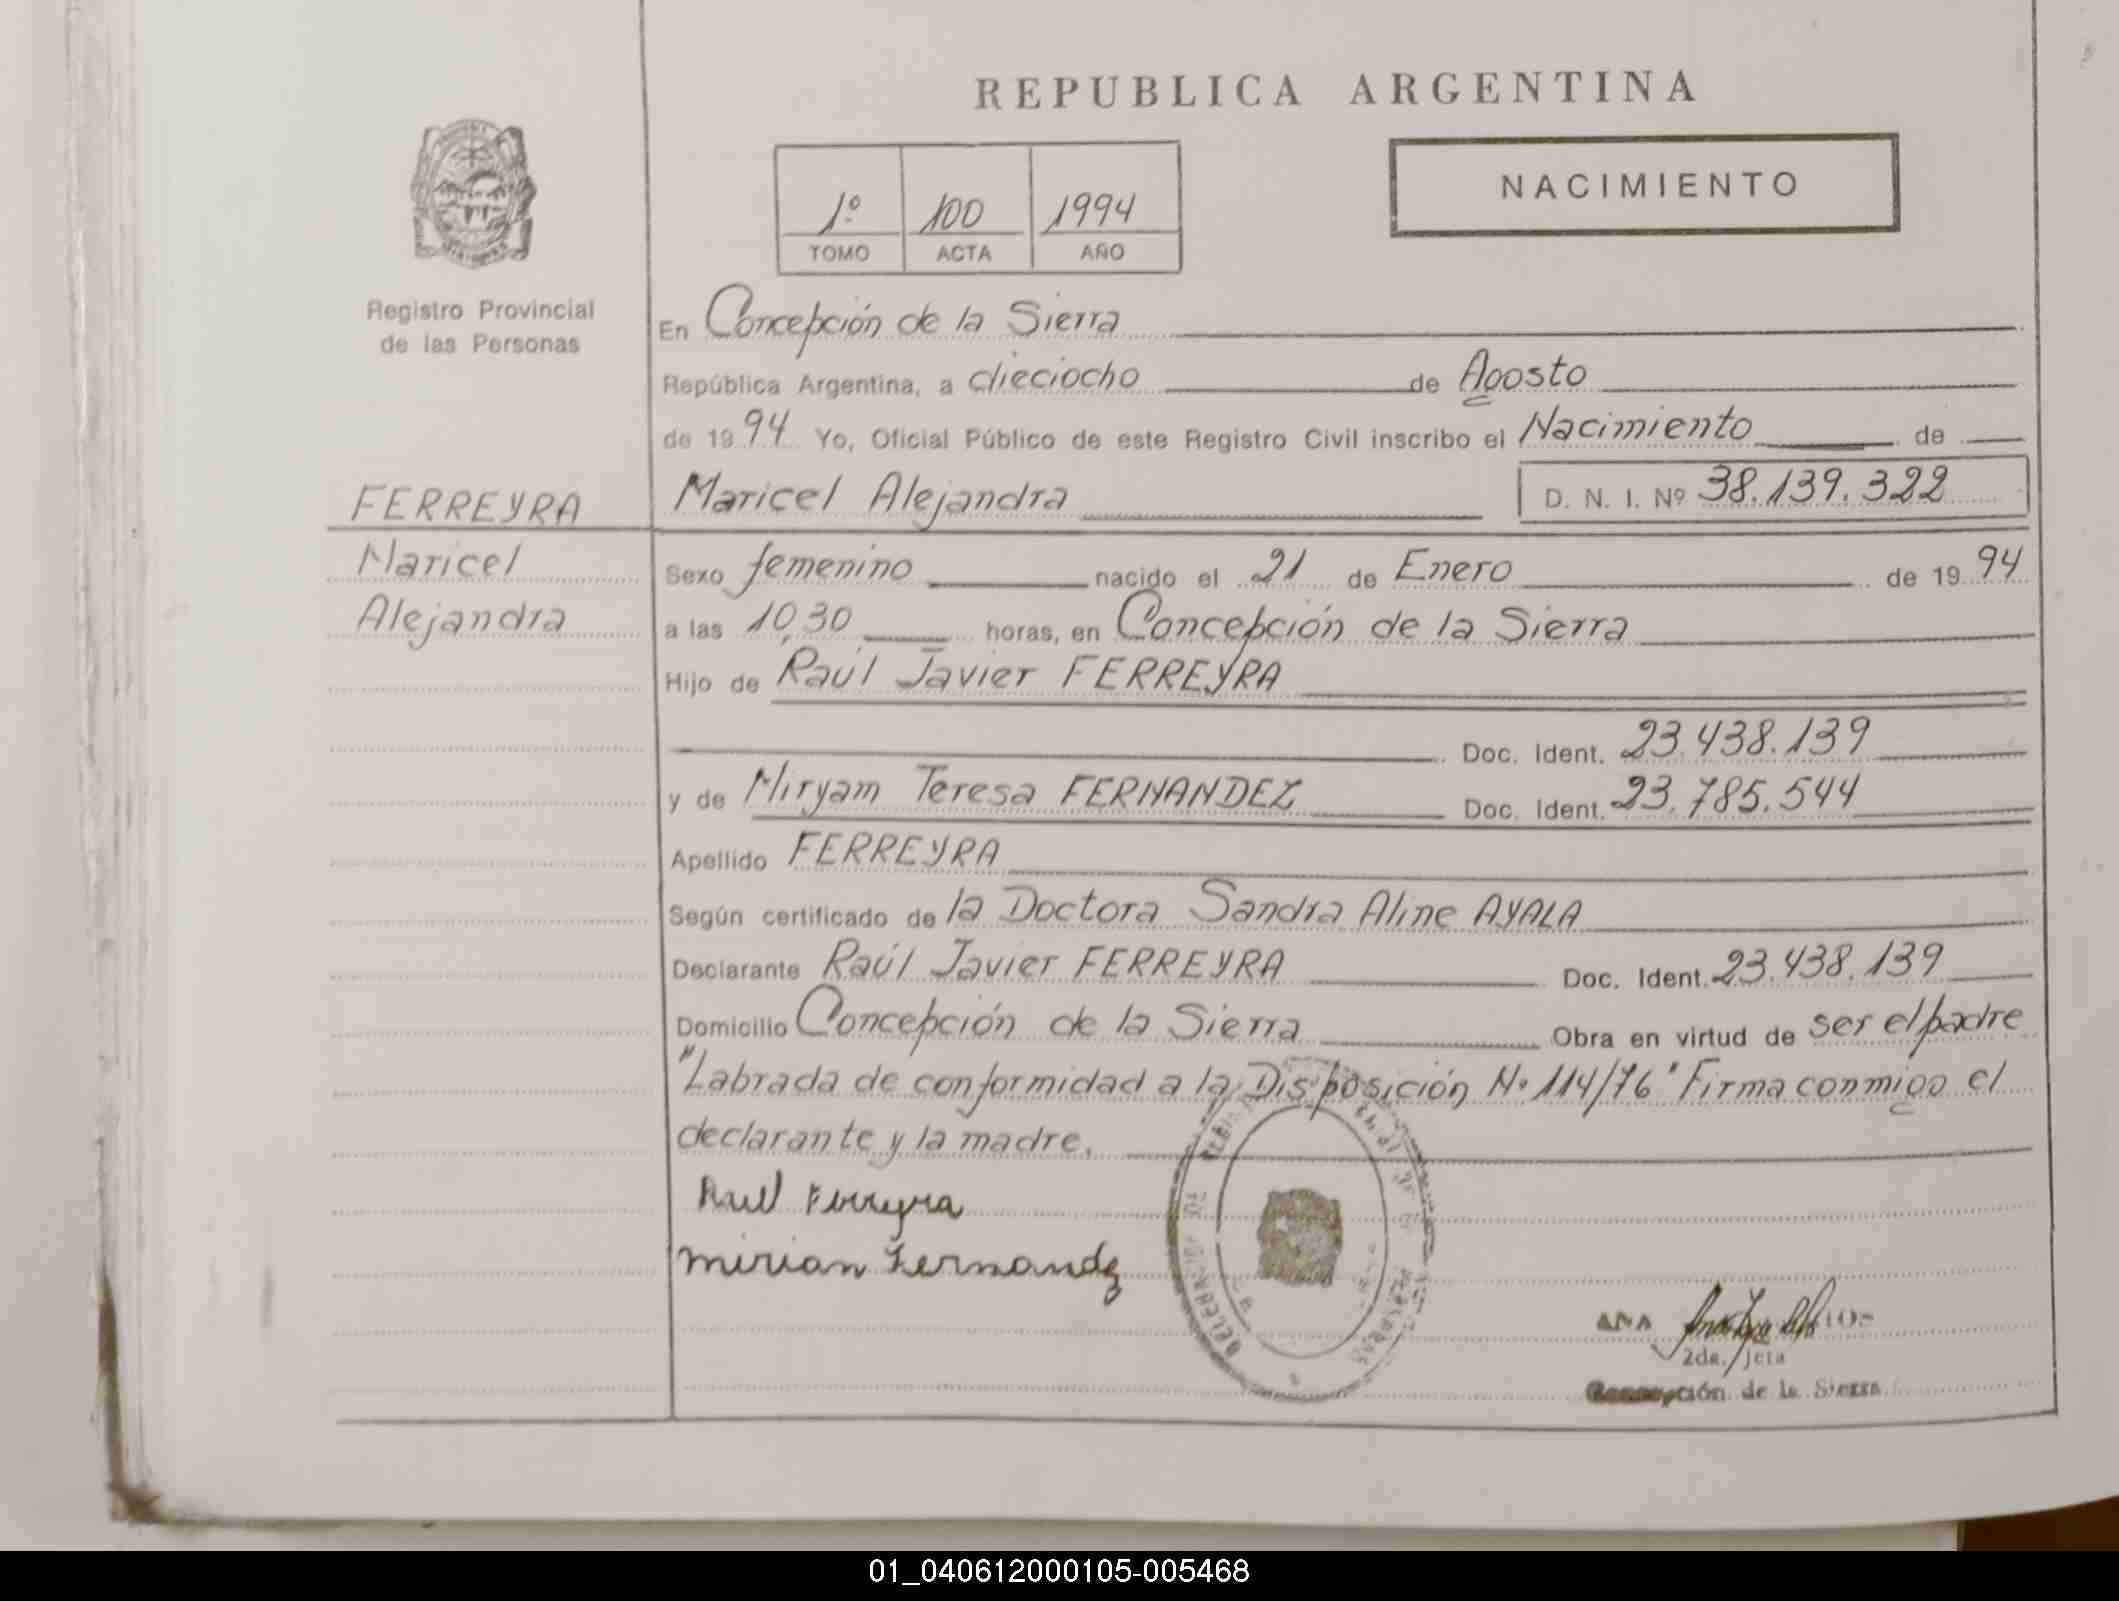 REPUBLICA ARGENTINA
NACIMIENTO
1º 100 1994
TOMO ACTA AÑO
Registro Provincial
de las Personas
En Concepción de la Sierra
República Argentina, a dieciocho de Agosto
de 1994 Yo, Oficial Público de este Registro Civil inscribo el Nacimiento de
FERREYRA
Maricel Alejandra D. N. I. Nº 38.139.322
Maricel
Alejandra
Sexo femenino nacido el 21 de Enero de 1994
a las 10,30 horas, en Concepción de la Sierra
Hijo de Raúl Javier FERREYRA
Doc. Ident. 23.438.139
y de Miryam Teresa FERNANDEZ Doc. Ident. 23.785.544
Apellido FERREYRA
Según certificado de la Doctora Sandra Aline AYALA
Declarante Raúl Javier FERREYRA Doc. Ident. 23.438.139
Domicilio Concepción de la Sierra Obra en virtud de ser el padre
"Labrada de conformidad a la Disposición Nº 114/76" Firma conmigo el
declarante y la madre.
Raul Ferreyra
mirian Fernandez
ANA
2da. Jeta
Concepción de la Sierra
01_040612000105-005468